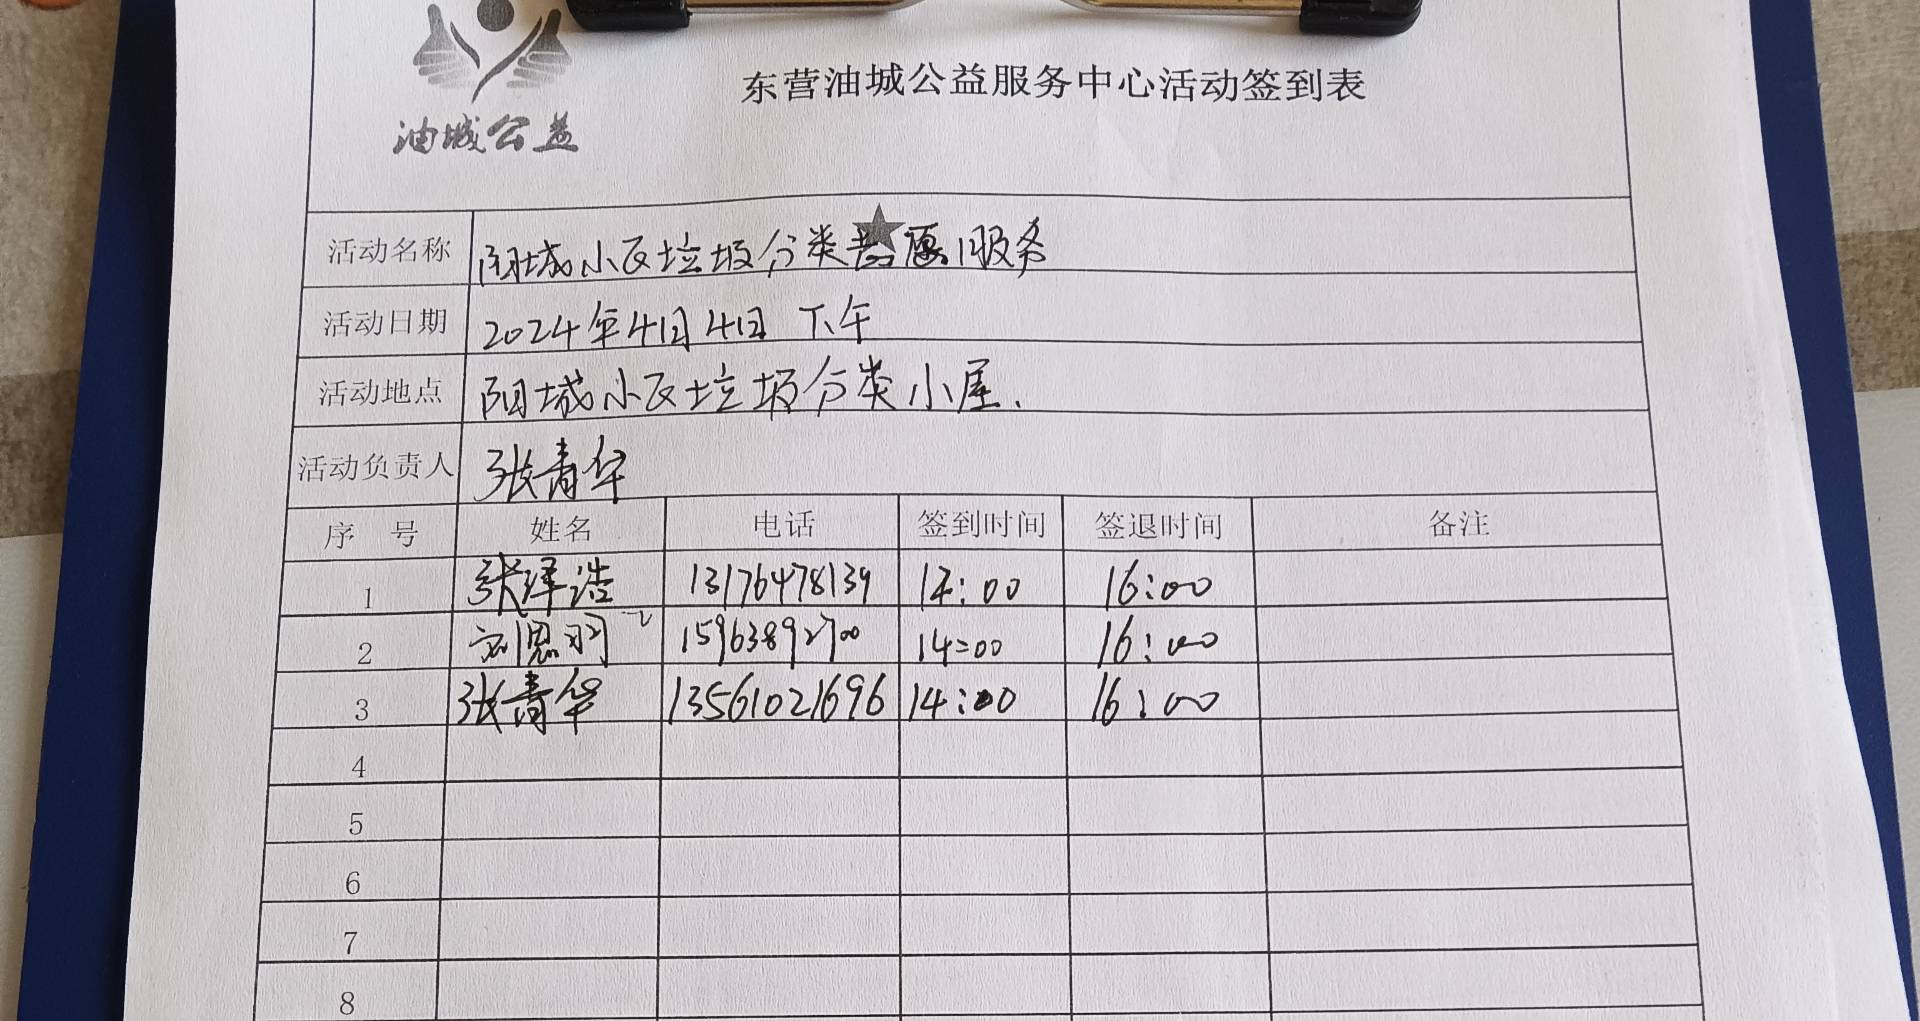 油城公益
东营油城公益服务中心活动签到表
活动名称 阳城小区垃圾分类志愿服务
活动日期 2024年4月4日 下午
活动地点 阳城小区垃圾分类小屋.
活动负责人 张青华
序 号 姓名 电话 签到时间 签退时间 备注
1 张泽浩 13176478139 14:00 16:00
2 刘恩羽 15963892700 14:00 16:00
3 张青华 13561021696 14:00 16:00
4
5
6
7
8